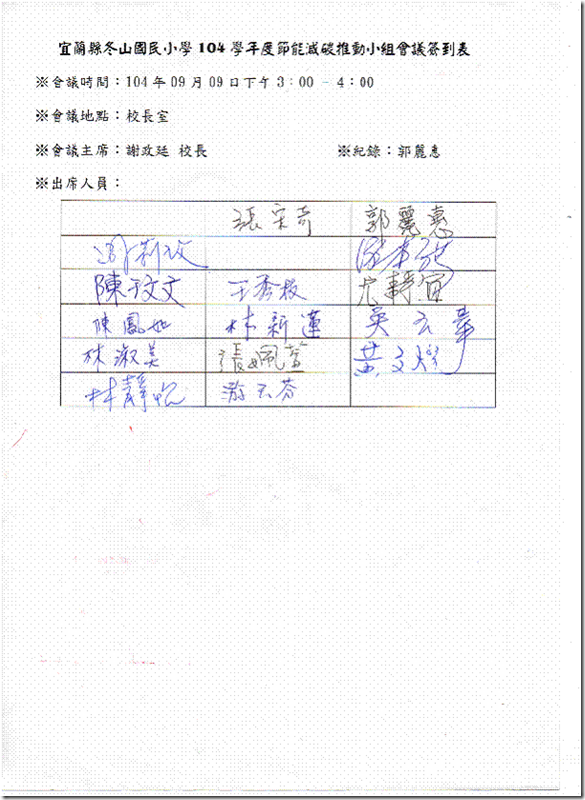 宜蘭縣冬山國民小學 104 學年度節能減碳推動小組會議簽到表
※會議時間：104 年 09 月 09 日下午 3：00 - 4：00
※會議地點：校長室
※會議主席：謝政廷 校長 ※紀錄：郭麗惠
※出席人員：
張宋奇 郭麗惠
陳玟文 王秀枝
陳鳳如 林新蓮
林淑美 張
林靜 游